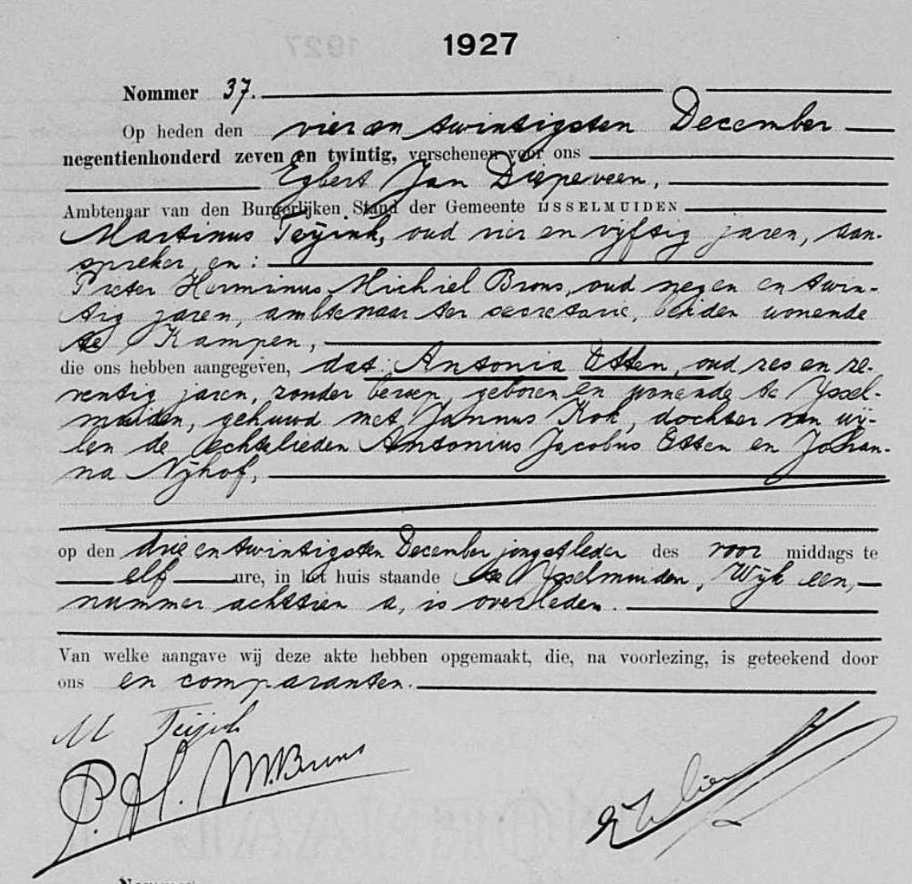 1927
Nommer 37.
Op heden den vier en twintigsten December
negentienhonderd zeven en twintig, verschenen voor ons
Egbert Jan Diepeveen,
Ambtenaar van den Burgerlijken Stand der Gemeente IJSSELMUIDEN
Martinus Teijink, oud vier en vijftig jaren, aan-
spreker, en:
Pieter Herminus Michiel Brons, oud negen en twin-
tig jaren, ambtenaar ter secretarie, beiden wonende
te Kampen,
die ons hebben aangegeven, dat: Antonia Otten, oud zes en ze-
ventig jaren, zonder beroep, geboren en wonende te Yssel-
muiden, gehuwd met Jannus Kok, dochter van wij-
len de echtelieden Antonius Jacobus Otten en Johan-
na Nijhof,
op den drie en twintigsten December jongstleden des voor middags te
elf ure, in het huis staande te Ysselmuiden, Wijk een,
nummer achttien a, is overleden.
Van welke aangave wij deze akte hebben opgemaakt, die, na voorlezing, is geteekend door
ons en comparanten.
M Teijink
P. H. M. Brons